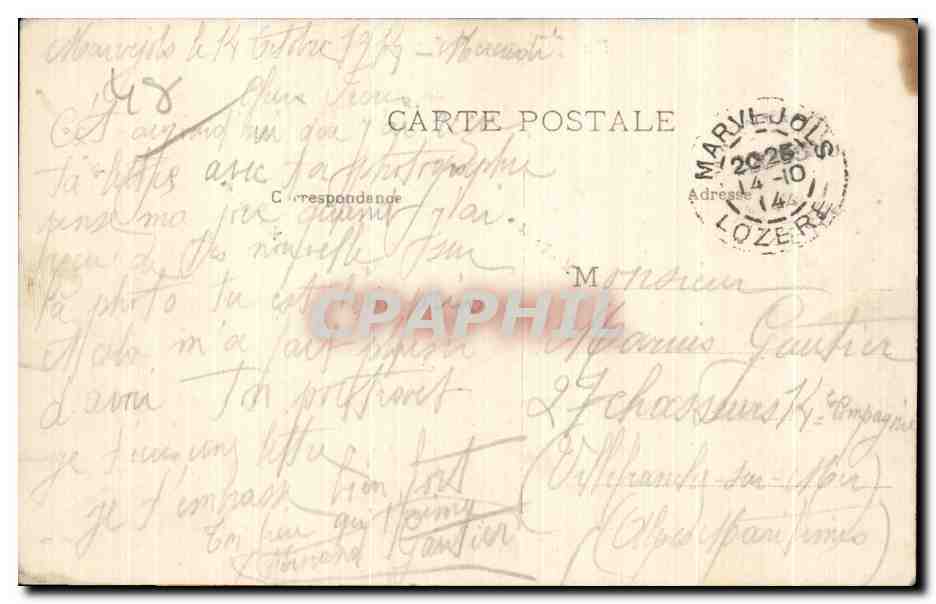 Marvejols le 14 Octobre 1914 - "Mercredi"
48
Cher Frère
CARTE POSTALE
MARVEJOLS
20 25
14 -10
14
LOZERE
C'est aujourd'hui que j'ai
ta lettre avec ta photographie
Correspondance
Adresse
pense ma joie quand j'ai
reçu de tes nouvelle sur
ta photo tu est
CPAPHIL
Cela m'a fait plaisir
d'avoir ton porttrait
je t'ecris une lettre
je t'embrasse bien fort
Ton frère qui t'aime
Fernand Gautier
Monsieur
Marius Gautier
27 chasseurs 14e Compagnie
(Villefranche-sur-Mer)
(Alpes Maritimes)